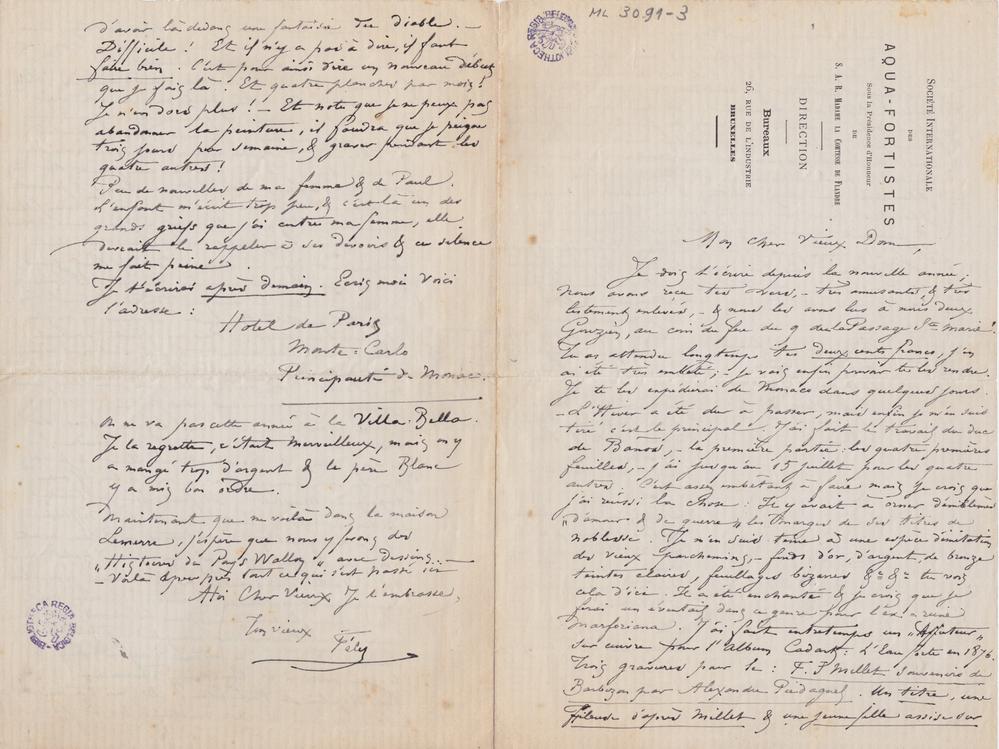 ML 3091-3
SOCIÉTÉ INTERNATIONALE
DES
AQUA-FORTISTES
Sous la Présidence d'Honneur
DE
S. A. R. MADAME LA COMTESSE DE FLANDRE
DIRECTION
Bureaux
26, RUE DE L'INDUSTRIE
BRUXELLES
Mon cher Vieux Dom,
Je dois t'écrire depuis la nouvelle année;
nous avons reçu tes vers, - très amusants, & très
lestement enlevés, - & nous les avons lus à nous deux
Gouzien, au coin du feu du 9 de la Passage Ste Marie.
Tu as attendu longtemps tes deux cents francs, j'en
ai été très embêté; - je vais enfin pouvoir te les rendre.
Je te les expédierai de Monaco dans quelques jours.
- L'Hiver a été dur à passer, mais enfin je m'en suis
tiré c'est le principal. J'ai fait le travail du duc
de Banos, - la première partie: les quatre premières
feuilles, - j'ai jusqu'au 15 juillet pour les quatre
autres. C'est assez embêtant à faire mais je crois que
j'ai réussi la chose: Il y avait à orner d'emblèmes
"d'amour & de guerre" les marges de ses titres de
noblesse. Je m'en suis tenu à une espèce d'imitation
des vieux parchemins, - fonds d'or, d'argent, de bronze
teintes claires, feuillages bizarres &a &a tu vois
cela d'ici. Il a été enchanté & je crois que je
ferai un éventail dans ce genre pour l'ex-reine
Marforiana. J'ai fait entretemps un "Affuteur"
sur cuivre pour l'album Cadart: L'Eau forte en 1876.
Trois gravures pour le: F. J Millet Souvenirs de
Barbizon par Alexandre Piédagnel. Un titre, une
fileuse d'après Millet & une jeune fille assise sur
d'avoir là dedans une fantaisie du diable. -
Difficile! Et il n'y a pas à dire, il faut
faire bien. C'est pour ainsi dire un nouveau début
que je fais là! Et quatre planches par mois!
Je n'en dors plus! - Et note que je ne peux pas
abandonner la peinture, il faudra que je peigne
trois jours par semaine, & graver pendant les
quatre autres!
Peu de nouvelles de ma femme & de Paul.
L'enfant m'écrit trop peu, & c'est là un des
grands griefs que j'ai contre ma femme, elle
devrait le rappeler à ses devoirs & ce silence
me fait peine.
Je t'écrirai après demain. Ecris moi voici
l'adresse:
Hotel de Paris
Monte-Carlo
Principauté de Monaco.
On ne va pas cette année à la Villa-Bella.
Je la regrette, c'était merveilleux, mais on y
a mangé trop d'argent & le père Blanc
y a mis bon ordre.
Maintenant que me voilà dans la maison
Lemerre, j'espère que nous y ferons des
"Histoires du Pays Wallon" avec dessins. -
- Voilà à peu près tout ce qui s'est passé ici -
Adi Cher Vieux Je t'embrasse,
Ton vieux
Fély